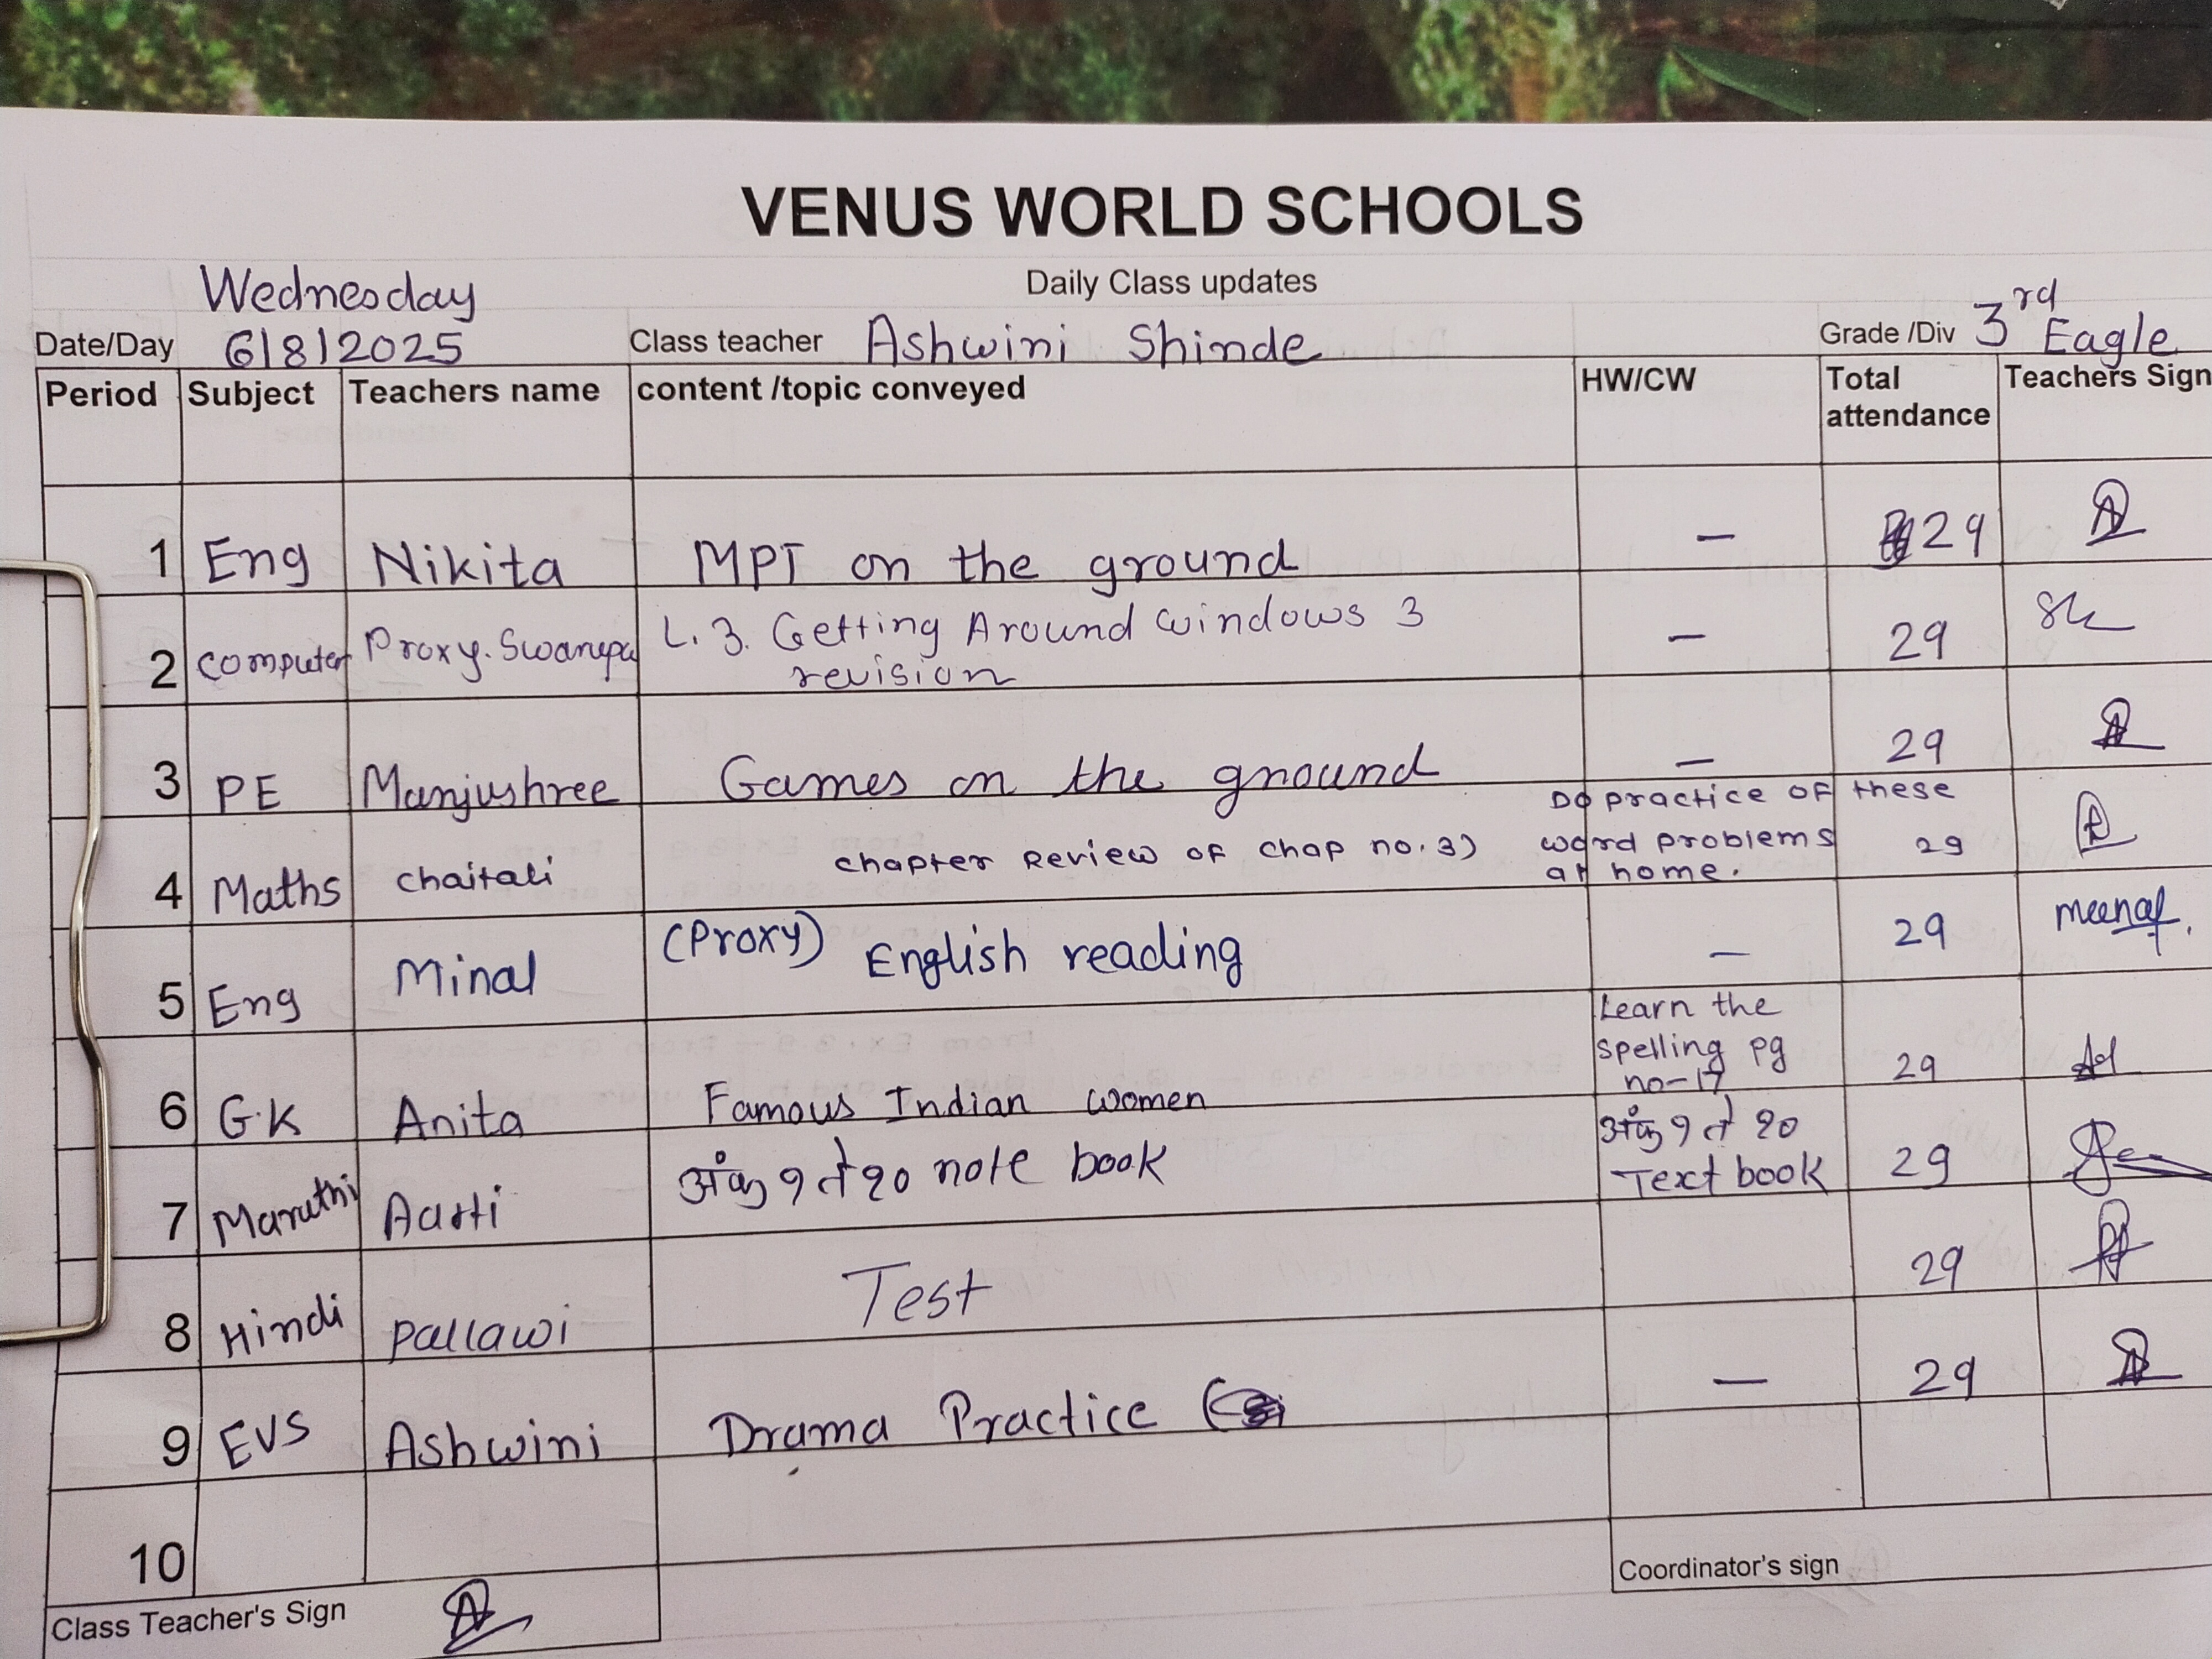 VENUS WORLD SCHOOLS
Daily Class updates
Wednesday
Date/Day 6/8/2025 Class teacher Ashwini Shinde Grade /Div 3rd Eagle
Period Subject Teachers name content /topic conveyed HW/CW Total attendance Teachers Sign
1 Eng Nikita MPT on the ground — 29
2 computer Proxy. L.3. Getting Around windows 3 — 29
revision
3 PE Manjushree Games on the ground — 29
4 Maths chaitali chapter Review of chap no.3) Do practice of these word problems at home. 29
5 Eng Minal (Proxy) English reading — 29
6 G.K Anita Famous Indian women Learn the spelling pg no-17 29
7 Marathi Aarti अंक १ ते २० note book अंक १ ते २० Text book 29
8 Hindi Pallawi Test 29
9 EVS Ashwini Drama Practice — 29
10
Class Teacher's Sign Coordinator's sign